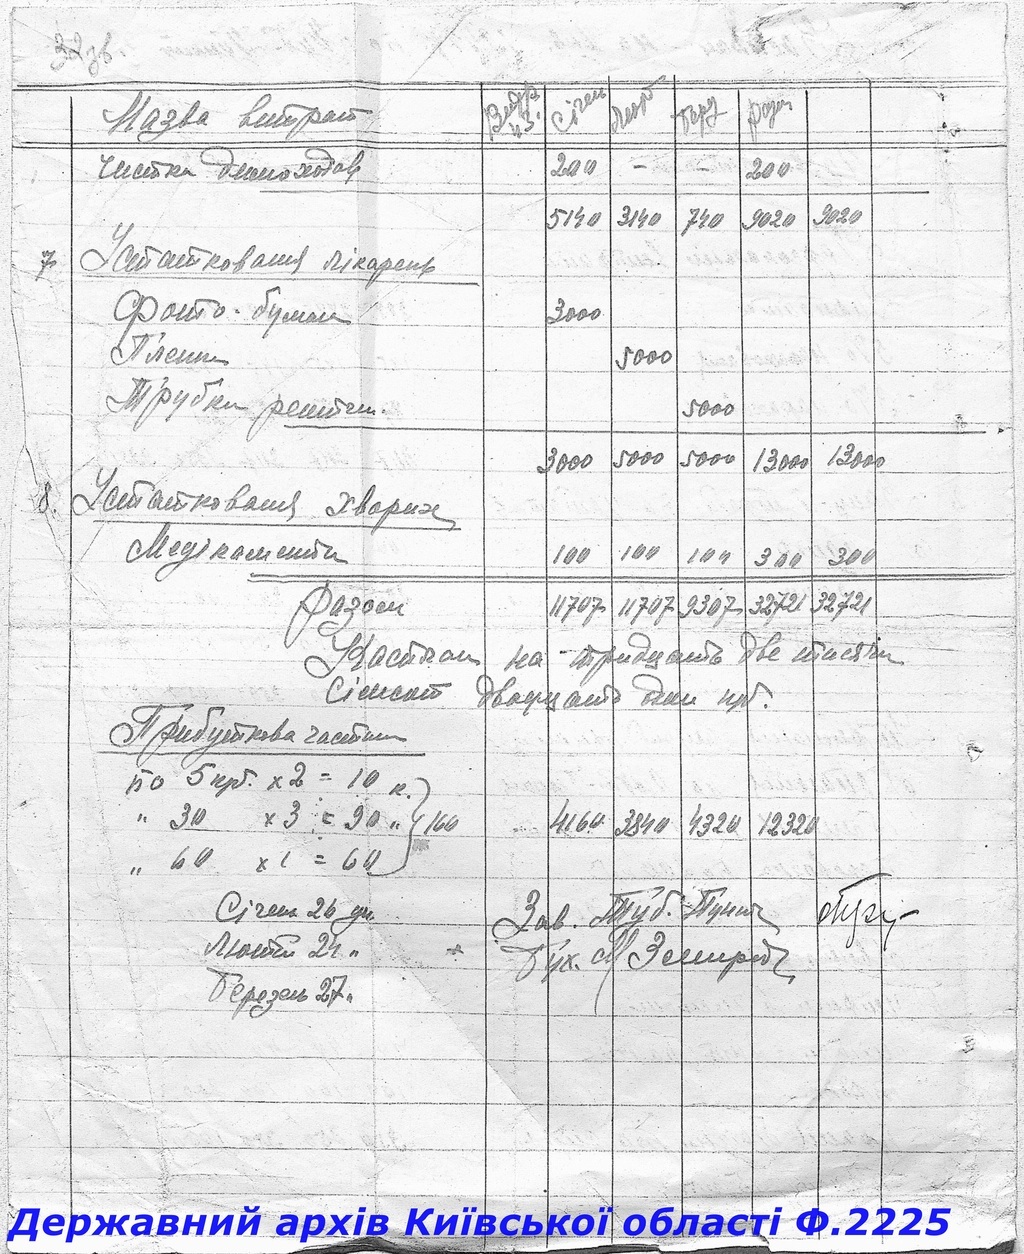 32 зв.
Назва витрат Січень Лют Берз разом
Чистка димоходів 200 - - 200
5140 3140 740 9020 9020
7 Устатковання лікарень
Фото-бумага 3000
Пленки 5000
Трубки рентген. 5000
3000 5000 5000 13000 13000
8. Устатковання хворих
Медікаменти 100 100 100 300 300
Разом 11707 11707 9307 32721 32721
на тридцать две тисячи
сімсот двадцать один крб.
Прибуткова частина
по 5 крб. x 2 = 10 к.
" 30 x 3 = 90 " 160 4160 3840 4320 12320
" 60 x 1 = 60
Січень 26 дн. Зав. Туб. Пункт
Лютий 24 " Бух.
Березень 27 "
Державний архів Київської області Ф.2225